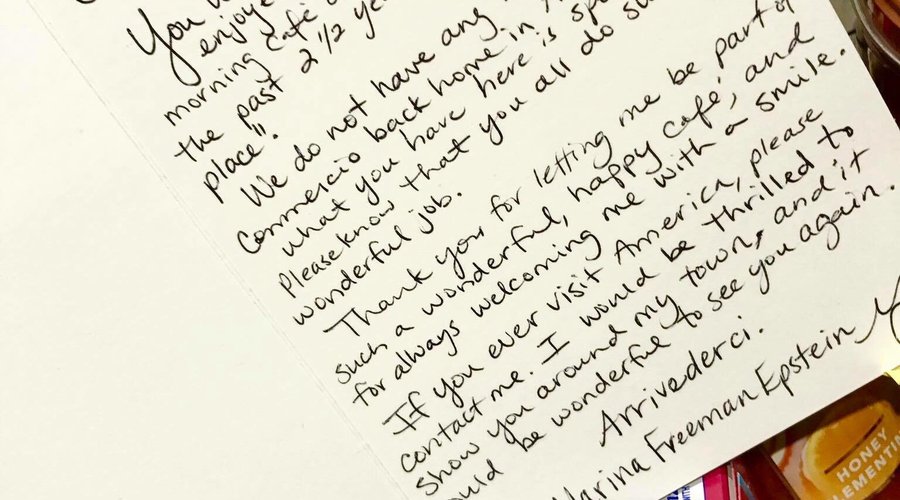 You
enjoye
morning café
the past 2 1/2 ye
place".
We do not have any
Commercio back home in
what you have here is spe
Please know that you all do su
wonderful job.
Thank you for letting me be part of
such a wonderful, happy café, and
for always welcoming me with a smile.
If you ever visit America, please
contact me. I would be thrilled to
show you around my town, and it
ould be wonderful to see you again.
Arrivederci.
arina Freeman Epstein
HONEY
EMENTIN